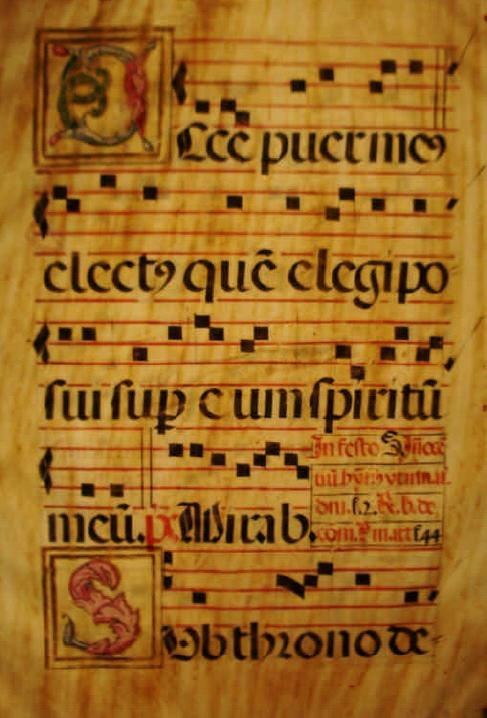 ECce puer meꝰ
electꝰ quē elegi po
ſui ſuꝑ eum ſpiritū
meū. Mirab.
In feſto S. Inocē
f.2. de
com. mart f.44
SUb throno de